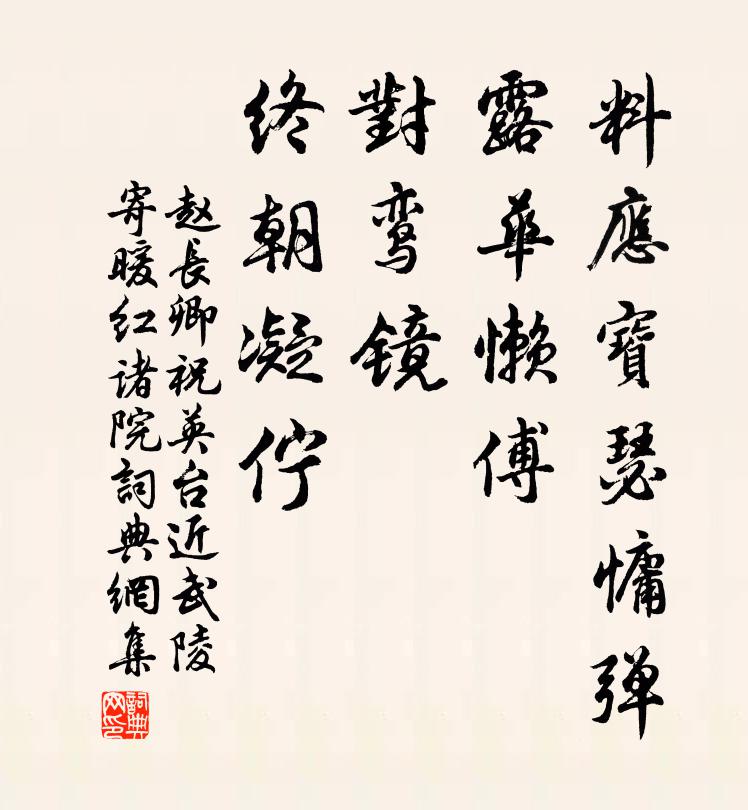 料應寶瑟慵彈
露華懶傅
對鸾镜
终朝凝伫
赵長卿祝英台近武陵
寄暖红诸院詞典網集
詞典
网印